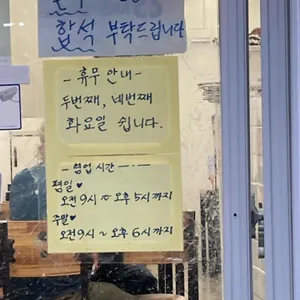 합석 부탁드립니다
- 휴무 안내 -
두번째, 네번째
화요일 쉽니다.
- 영업시간 -
평일♥
오전9시 ~ 오후5시까지
주말♥
오전9시 ~ 오후6시까지